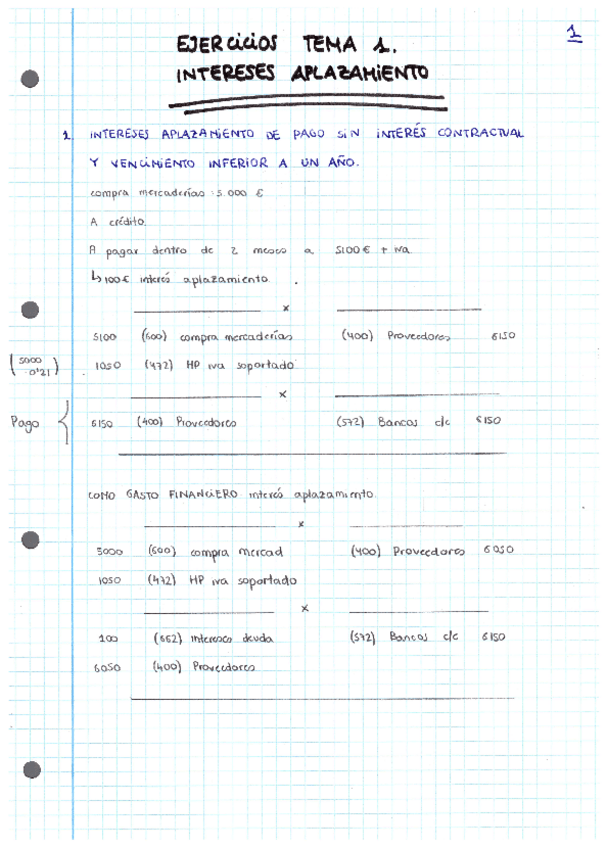 1
EJERcicios TEMA 1.
INTERESES APLAZAMIENTO
1 INTERESES APLAZAMIENTO DE PAGO SIN INTERÉS CONTRACTUAL
Y VENCIMIENTO INFERIOR A UN AÑO.
compra mercaderías : 5.000 €
A crédito.
A pagar dentro de 2 meses a 5100 € + iva
↳ 100 € interés aplazamiento.
x
5100 (600) compra mercaderías (400) Proveedores 6150
(5000 · 0'21) 1050 (472) HP iva soportado
x
Pago { 6150 (400) Proveedores (572) Bancos c/c 6150
COMO GASTO FINANCIERO interés aplazamiento.
x
5000 (600) compra mercad (400) Proveedores 6050
1050 (472) HP iva soportado
x
100 (662) intereses deuda (572) Bancos c/c 6150
6050 (400) Proveedores